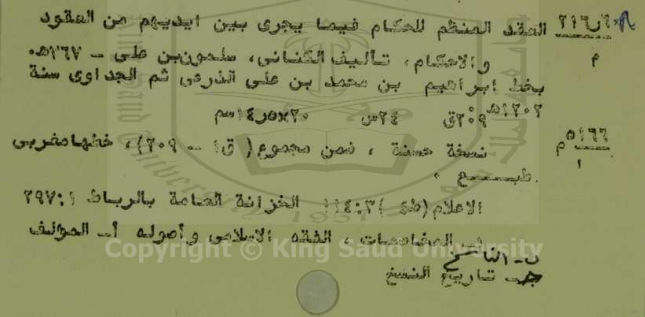 ٢١٦ر٩ العقد المنظم للحكام فيما يجرى بين ايديهم من العقود
م والاحكام، تأليف الكنانى، سلمون بن على - ٧٦٧هـ.
بخط ابراهيم بن محمد بن على الدرعى ثم الجداوى سنة
١٢٠٢هـ
٢٠٩ق ٢٤س ٢٠×١٤٫٥سم
٥١٦٦م نسخة حسنة ، ضمن مجموع (ق١ - ٢٠٩)، خطها مغربى
١ طبع .
الاعلام (ط٤) ٣: ١١٤ الخزانة العامة بالرباط ١: ٢٩٧
١- المخاصمات ، الفقه الاسلامى وأصوله أ- المؤلف
ب - الناسخ
جـ - تاريخ النسخ
Copyright © King Saud University